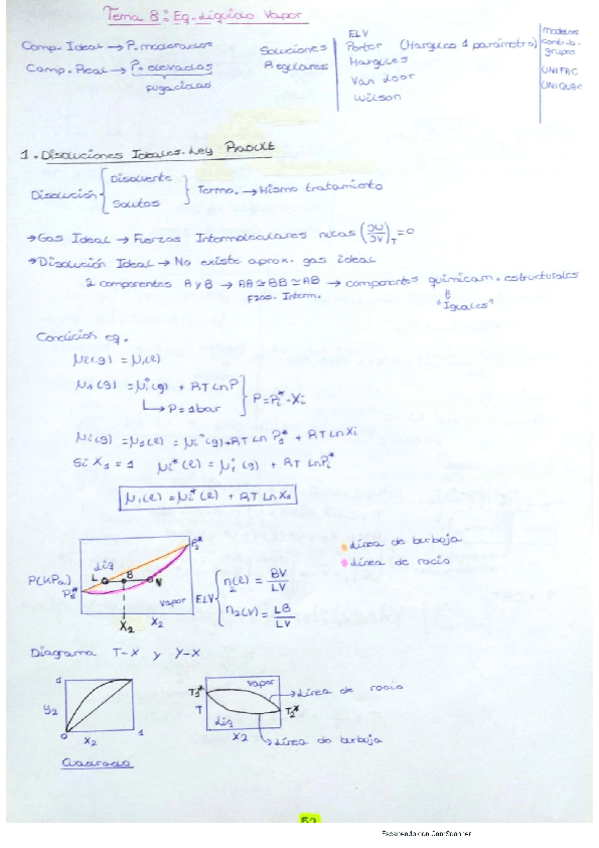 Tema 8: Eq. Líquido Vapor
Comp. Ideal → P. moderadas
Comp. Real → P. elevadas
Fugacidad
Soluciones
Regulares
ELV
Porter (Margules 1 parámetro)
Margules
Van Laar
Wilson
modelos
contrib.
grupos
UNIFAC
UNIQUAC
1. Disoluciones Ideales. Ley Raoult
Disolución { Disolvente
Solutos } Termo. → Mismo tratamiento
→ Gas Ideal → Fuerzas Intermoleculares nulas (∂U/∂V)T = 0
→ Disolución Ideal → No existe aprox. gas ideal
2 componentes A y B → AA ≅ BB ≅ AB → componentes químicam. estructurales
Fzas. Interm.
"Iguales"
Condición eq.
μi(g) = μi(l)
μ1(g) = μi°(g) + RT Ln P
↳ P = 1bar
P = Pi* · Xi
μi(g) = μ1(l) = μi°(g) + RT Ln P1* + RT Ln Xi
Si X1 = 1 μi*(l) = μi°(g) + RT Ln Pi*
μ1(l) = μi*(l) + RT Ln X1
P2*
liq
L B V
P(kPa)
vapor
X2 X2
ELV { n2(l) = BV/LV
n2(V) = LB/LV
línea de burbuja
línea de rocío
Diagrama T-X y Y-X
1
y2
0 X2 1
Cuadrado
T1*
vapor
T
liq
T2*
X2
→ línea de rocío
→ línea de burbuja
52
Escaneado con CamScanner